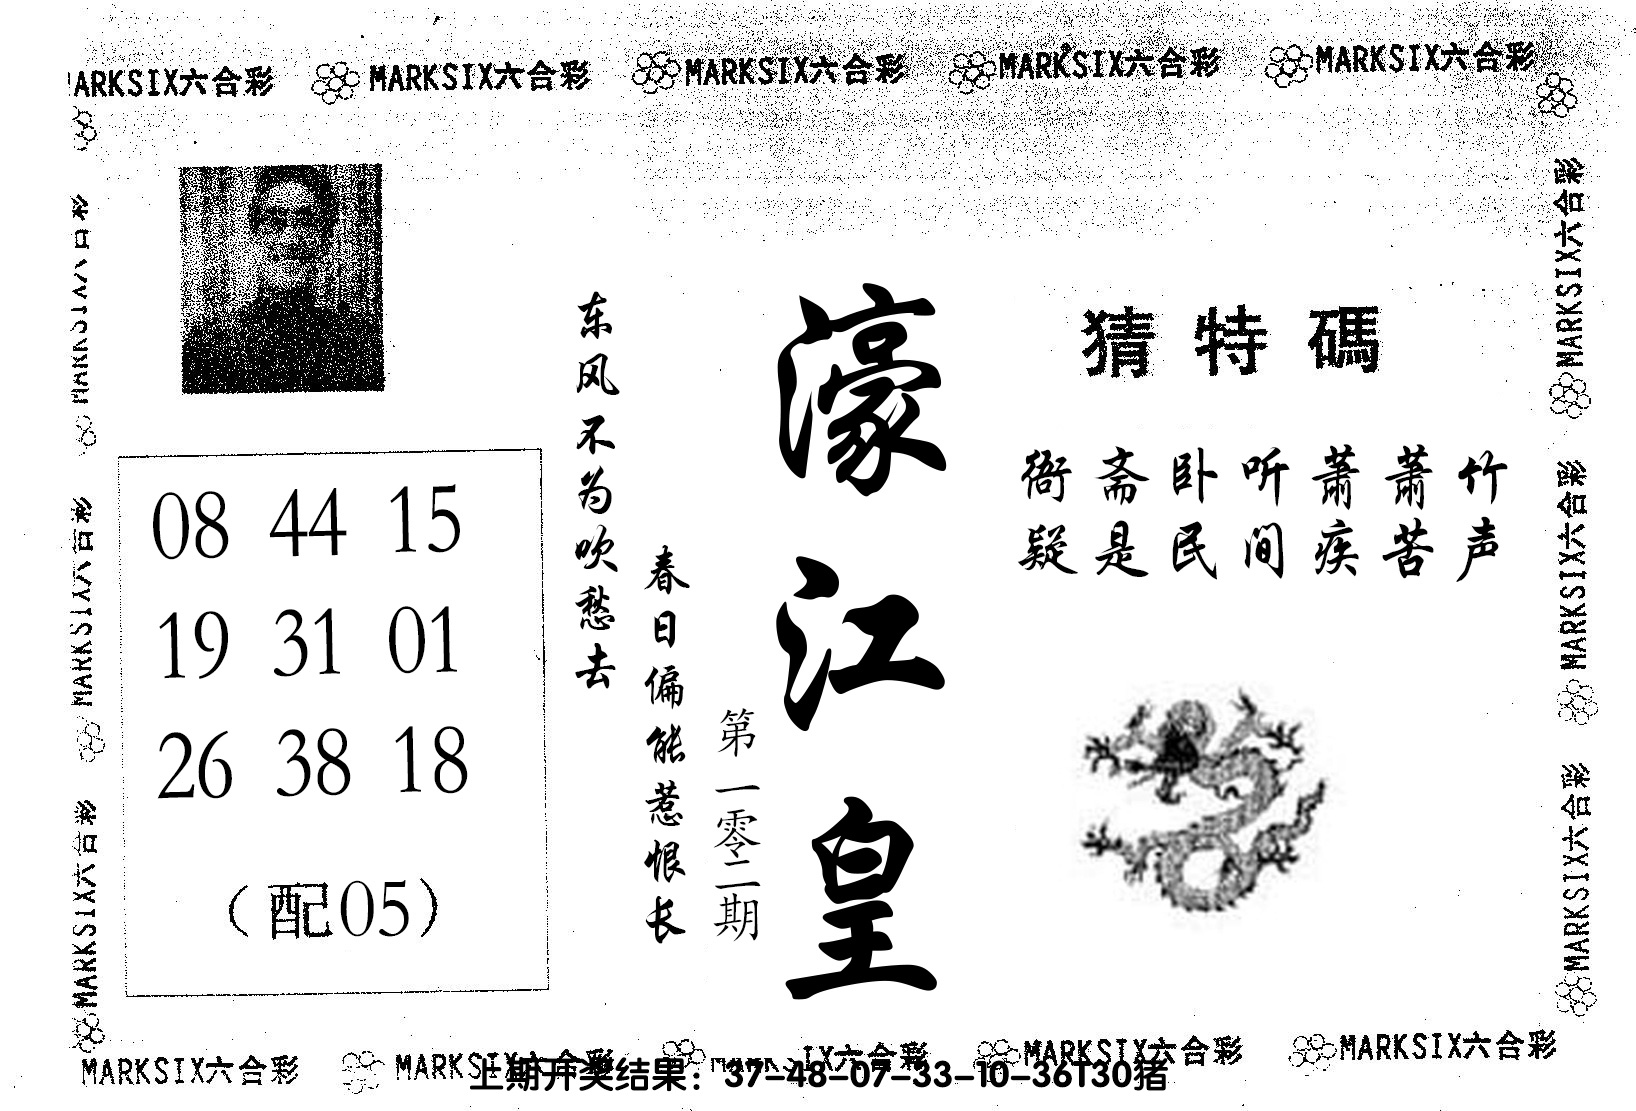 MARKSIX六合彩 MARKSIX六合彩 MARKSIX六合彩 MARKSIX六合彩 MARKSIX六合彩
猜特碼
衙斋卧听萧萧竹
疑是民间疾苦声
濠江皇
第一零二期
东风不为吹愁去
春日偏能惹恨长
08 44 15
19 31 01
26 38 18
（配05）
MARKSIX六合彩
MARKSIX六合彩
MARKSIX六合彩
MARKSIX六合彩
MARKSIX六合彩
MARKSIX六合彩
MARKSIX六合彩 MARKSIX六合彩 IX六合彩 MARKSIX六合彩 MARKSIX六合彩
上期开奖结果：37-48-07-33-10-36T30猪